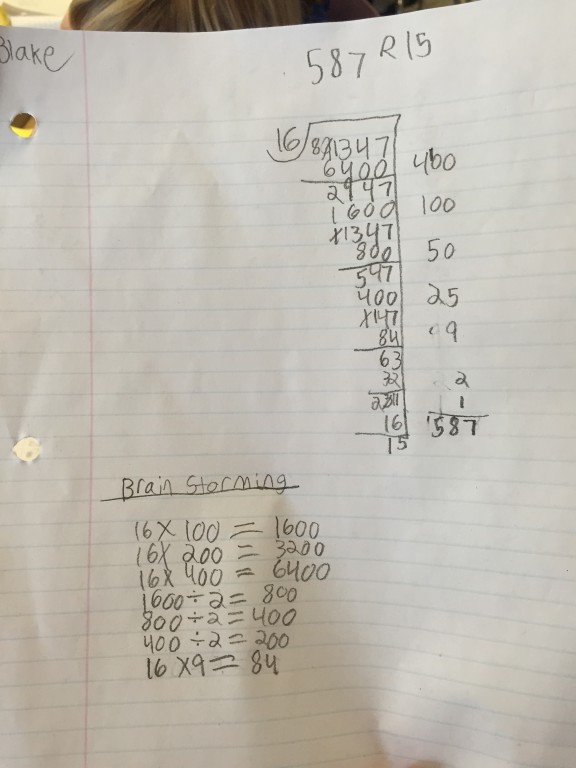 Blake
587 R15
16 9347
6400 400
2947
1600 100
1347
800 50
547
400 25
147
84 9
63
32 2
31
16 1
15 587
Brain Storming
16 X 100 = 1600
16 X 200 = 3200
16 X 400 = 6400
1600 ÷ 2 = 800
800 ÷ 2 = 400
400 ÷ 2 = 200
16 X 9 = 84